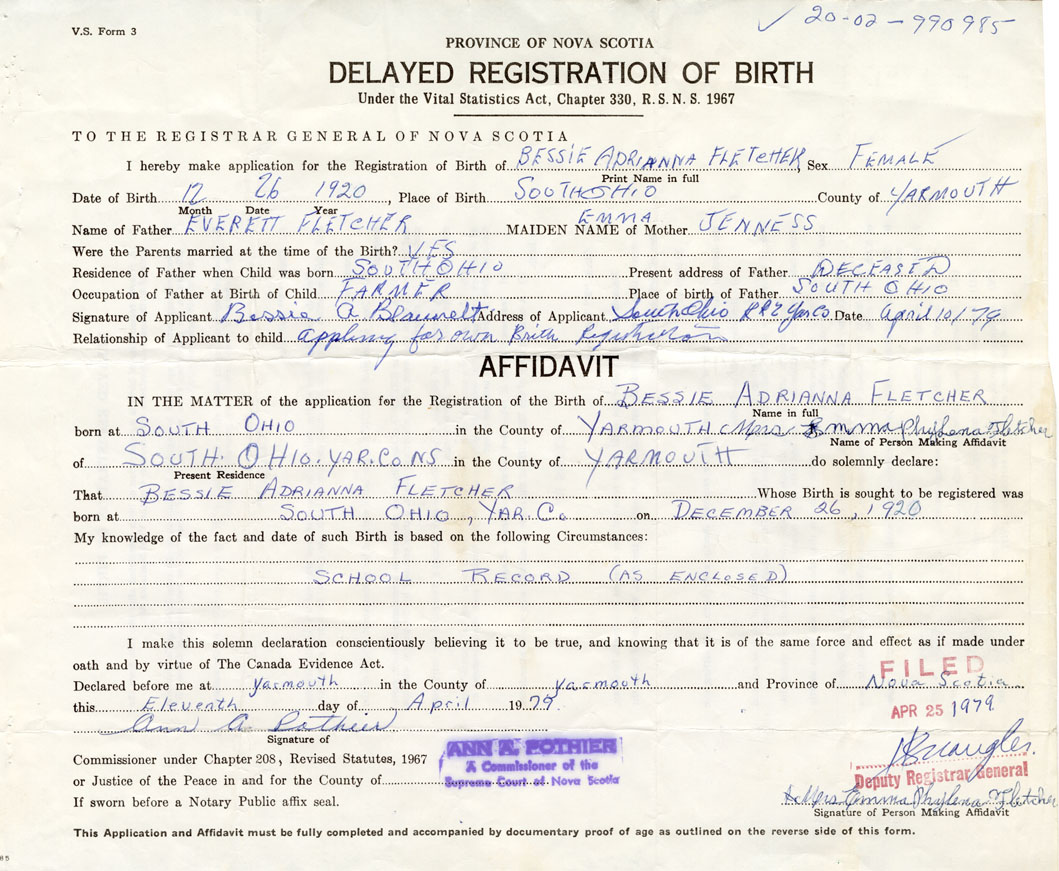 V.S. Form 3
✓ 20-02-990985
PROVINCE OF NOVA SCOTIA
DELAYED REGISTRATION OF BIRTH
Under the Vital Statistics Act, Chapter 330, R.S.N.S. 1967
TO THE REGISTRAR GENERAL OF NOVA SCOTIA
I hereby make application for the Registration of Birth of BESSIE ADRIANNA FLETCHER, Sex FEMALE
Print Name in full
Date of Birth 12 26 1920, Place of Birth SOUTH OHIO County of YARMOUTH
Month Date Year
Name of Father EVERETT FLETCHER MAIDEN NAME of Mother EMMA JENNESS
Were the Parents married at the time of the Birth? YES
Residence of Father when Child was born SOUTH OHIO Present address of Father DECEASED
Occupation of Father at Birth of Child FARMER Place of birth of Father SOUTH OHIO
Signature of Applicant Bessie A Blauvelt Address of Applicant South Ohio RR2 Yar Co Date April 10/79
Relationship of Applicant to child applying for own Birth Registration
AFFIDAVIT
IN THE MATTER of the application for the Registration of the Birth of BESSIE ADRIANNA FLETCHER
Name in full
born at SOUTH OHIO in the County of YARMOUTH Mrs. Emma Phylena Fletcher
Name of Person Making Affidavit
of SOUTH OHIO. YAR. CO NS in the County of YARMOUTH do solemnly declare:
Present Residence
That BESSIE ADRIANNA FLETCHER Whose Birth is sought to be registered was
born at SOUTH OHIO, YAR. Co. on DECEMBER 26, 1920
My knowledge of the fact and date of such Birth is based on the following Circumstances:
SCHOOL RECORD (AS ENCLOSED)
I make this solemn declaration conscientiously believing it to be true, and knowing that it is of the same force and effect as if made under
oath and by virtue of The Canada Evidence Act.
FILED
Declared before me at Yarmouth in the County of Yarmouth and Province of Nova Scotia
this Eleventh day of April 1979
APR 25 1979
Ann A. Pothier
Signature of
Commissioner under Chapter 208, Revised Statutes, 1967
or Justice of the Peace in and for the County of
If sworn before a Notary Public affix seal.
ANN A. POTHIER
A Commissioner of the
Supreme Court of Nova Scotia
Deputy Registrar General
Mrs Emma Phylena Fletcher
Signature of Person Making Affidavit
This Application and Affidavit must be fully completed and accompanied by documentary proof of age as outlined on the reverse side of this form.